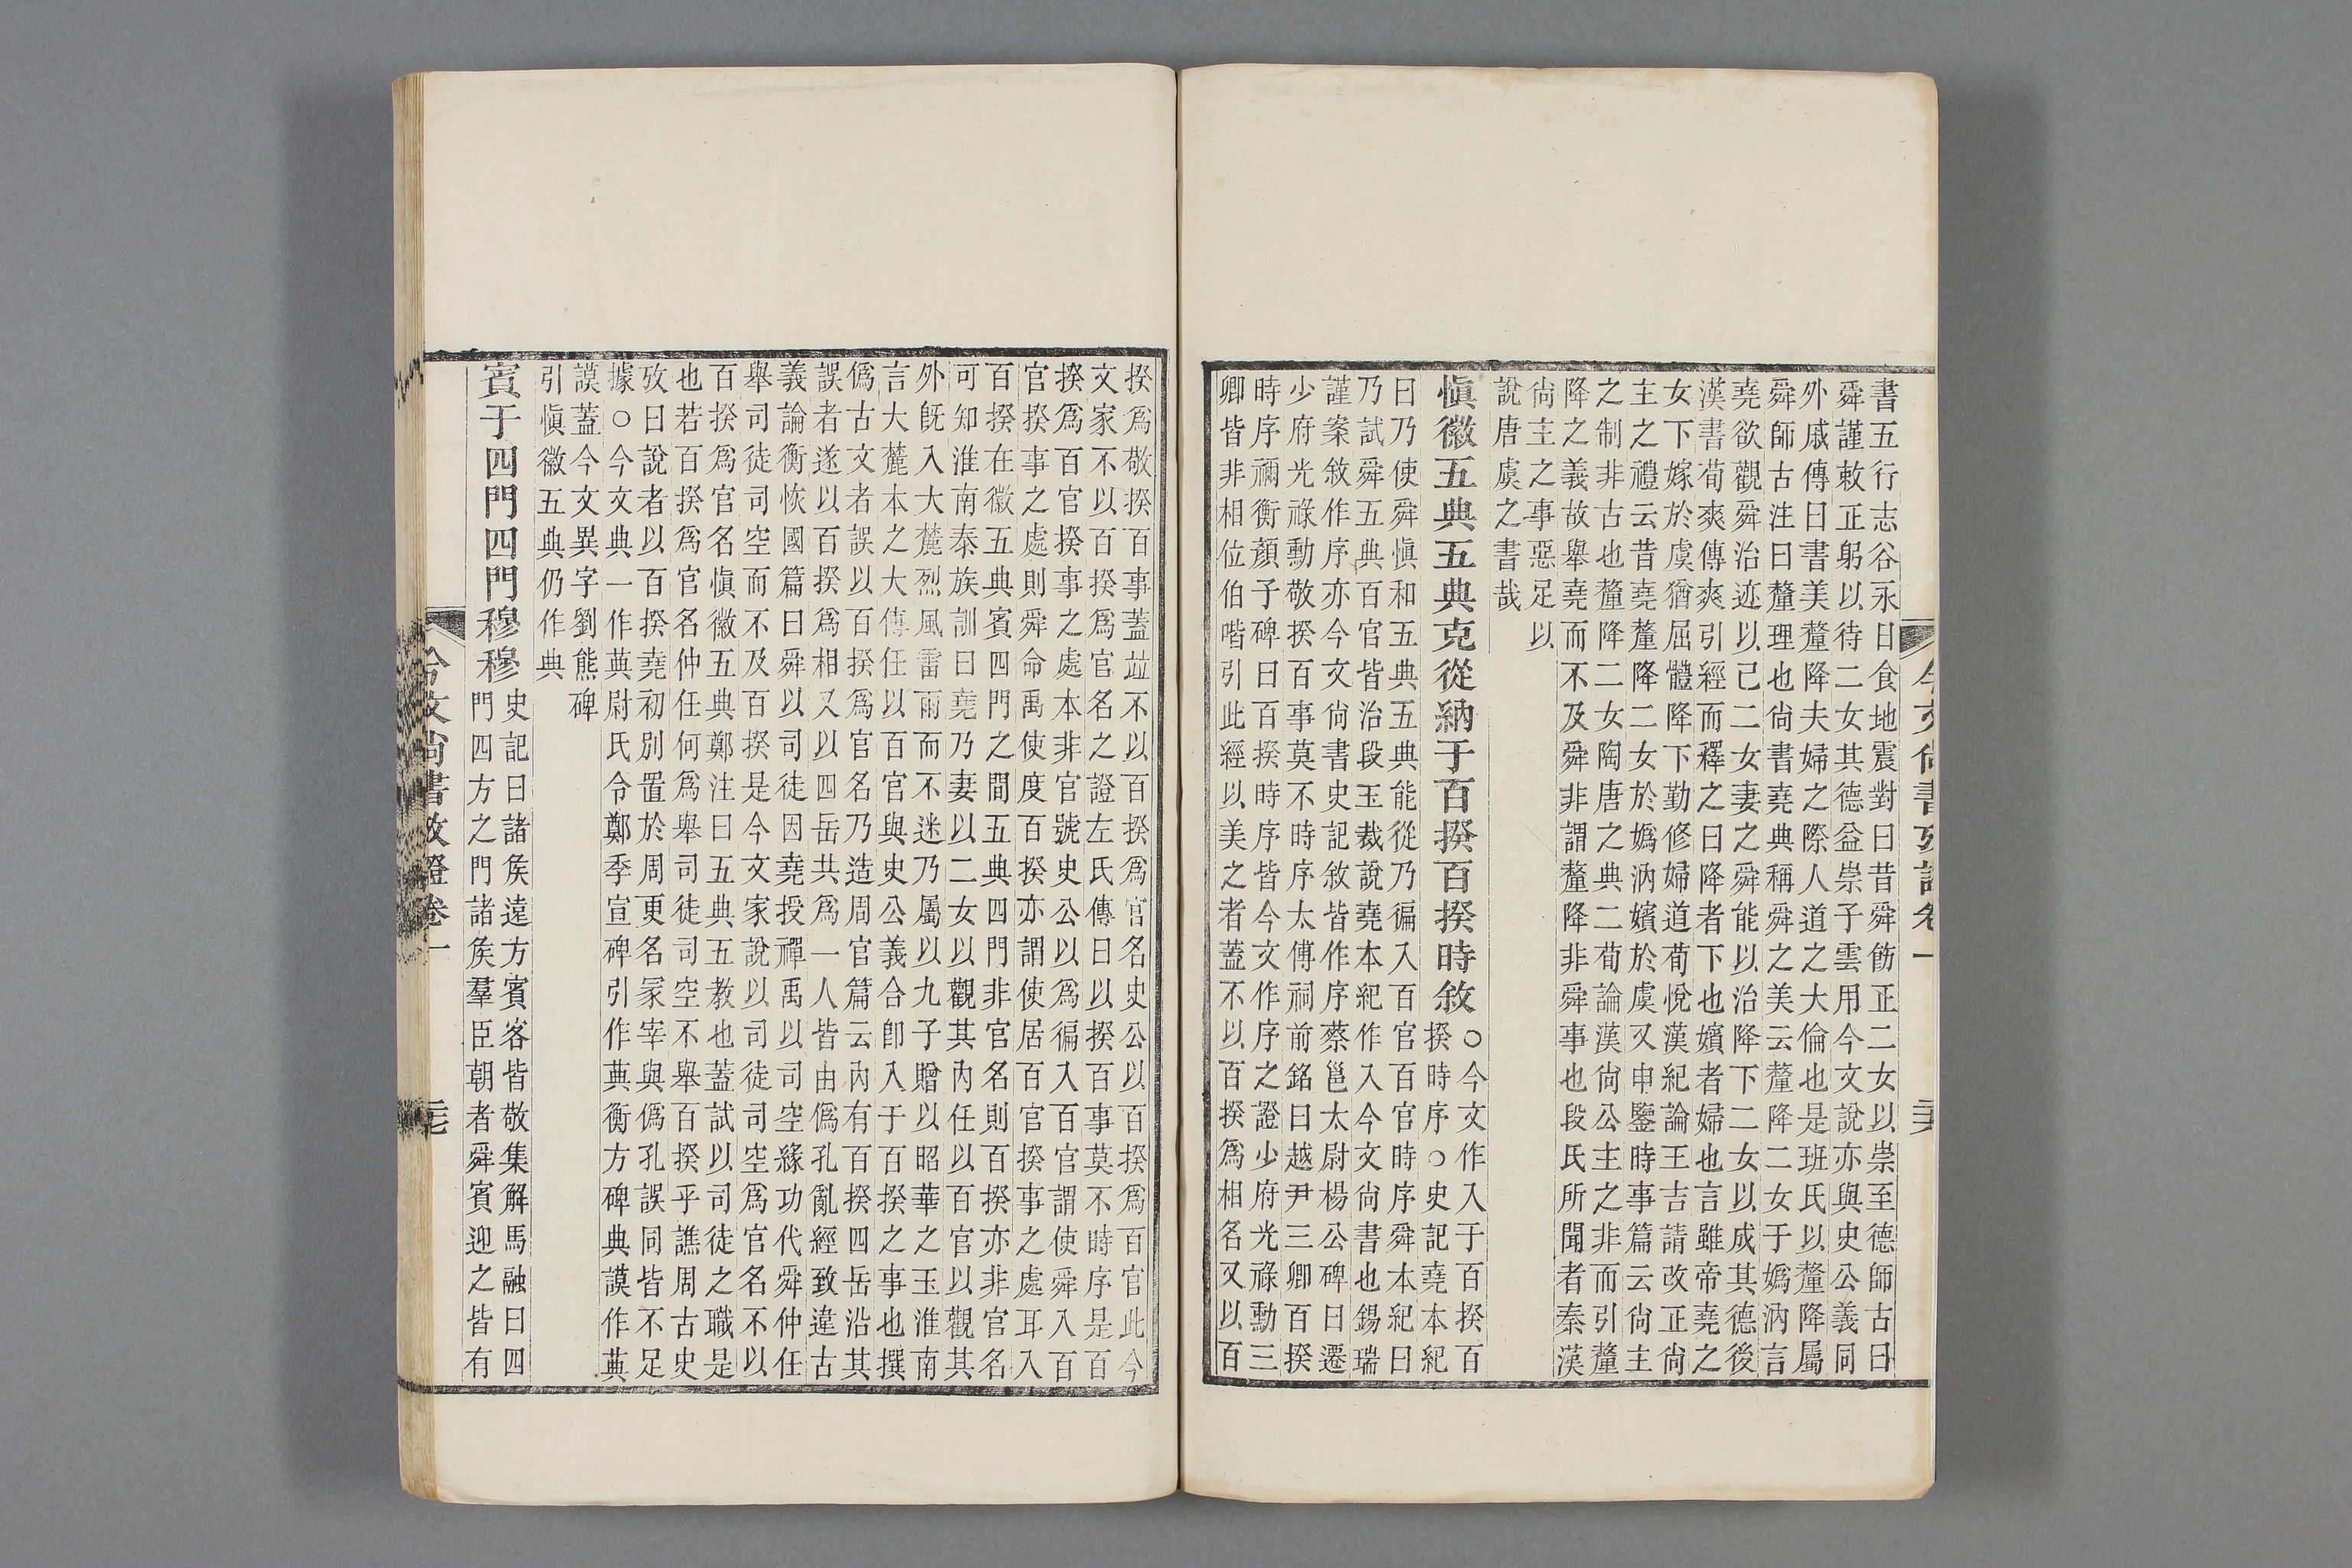 書五行志谷永日食地震對曰昔舜飭正二女以崇至德師古曰
舜謹敕正躬以待二女其德益崇子雲用今文說亦與史公義同
外戚傳曰書美釐降夫婦之際人道之大倫也是班氏以釐降屬
舜師古注曰釐理也尙書堯典稱舜之美云釐降二女于嬀汭言
堯欲觀舜治迹以己二女妻之舜能以治降下二女以成其德後
漢書荀爽傳爽引經而釋之曰降者下也嬪者婦也言雖帝堯之
女下嫁於虞猶屈體降下勤修婦道荀悅漢紀論王吉請改正尙
主之禮云昔堯釐降二女於嬀汭嬪於虞又申鑒時事篇云尙主
之制非古也釐降二女陶唐之典二荀論漢尙公主之非而引釐
降之義故舉堯而不及舜非謂釐降非舜事也段氏所聞者秦漢
尙主之事惡足以
說唐虞之書哉
愼徽五典五典克從納于百揆百揆時敘
○今文作入于百揆百
揆時序○史記堯本紀
曰乃使舜愼和五典五典能從乃徧入百官百官時序舜本紀曰
乃試舜五典百官皆治段玉裁說堯本紀作入今文尙書也錫瑞
謹案敘作序亦今文尙書史記敘皆作序蔡邕太尉楊公碑曰遷
少府光祿勳敬揆百事莫不時序太傅祠前銘曰越尹三卿百揆
時序禰衡顏子碑曰百揆時序皆今文作序之證少府光祿勳三
卿皆非相位伯喈引此經以美之者蓋不以百揆爲相名又以百
今文尙書攷證卷一
二十六
揆爲敬揆百事蓋竝不以百揆爲官名史公以百揆爲百官此今
文家不以百揆爲官名之證左氏傳曰以揆百事莫不時序是百
揆爲百官揆事之處本非官號史公以爲徧入百官謂使舜入百
官揆事之處則舜命禹使度百揆亦謂使居百官揆事之處耳入
百揆在徽五典賓四門之間五典四門非官名則百揆亦非官名
可知淮南泰族訓曰堯乃妻以二女以觀其內任以百官以觀其
外旣入大麓烈風雷雨而不迷乃屬以九子贈以昭華之玉淮南
言大麓本之大傳任以百官與史公義合卽入于百揆之事也撰
僞古文者誤以百揆爲官名乃造周官篇云內有百揆四岳沿其
誤者遂以百揆爲相又以四岳共爲一人皆由僞孔亂經致違古
義論衡恢國篇曰舜以司徒因堯授禪禹以司空緣功代舜仲任
舉司徒司空而不及百揆是今文家說以司徒司空爲官名不以
百揆爲官名愼徽五典鄭注曰五典五教也蓋試以司徒之職是
也若百揆爲官名仲任何爲舉司徒司空不舉百揆乎譙周古史
攷曰說者以百揆堯初別置於周更名冢宰與僞孔誤同皆不足
據○今文典一作蒖尉氏令鄭季宣碑引作蒖衡方碑典謨作蒖
謨蓋今文異字劉熊碑
引愼徽五典仍作典
賓于四門四門穆穆
史記曰諸侯遠方賓客皆敬集解馬融曰四
門四方之門諸侯羣臣朝者舜賓迎之皆有
今文尙書攷證卷一
二十七